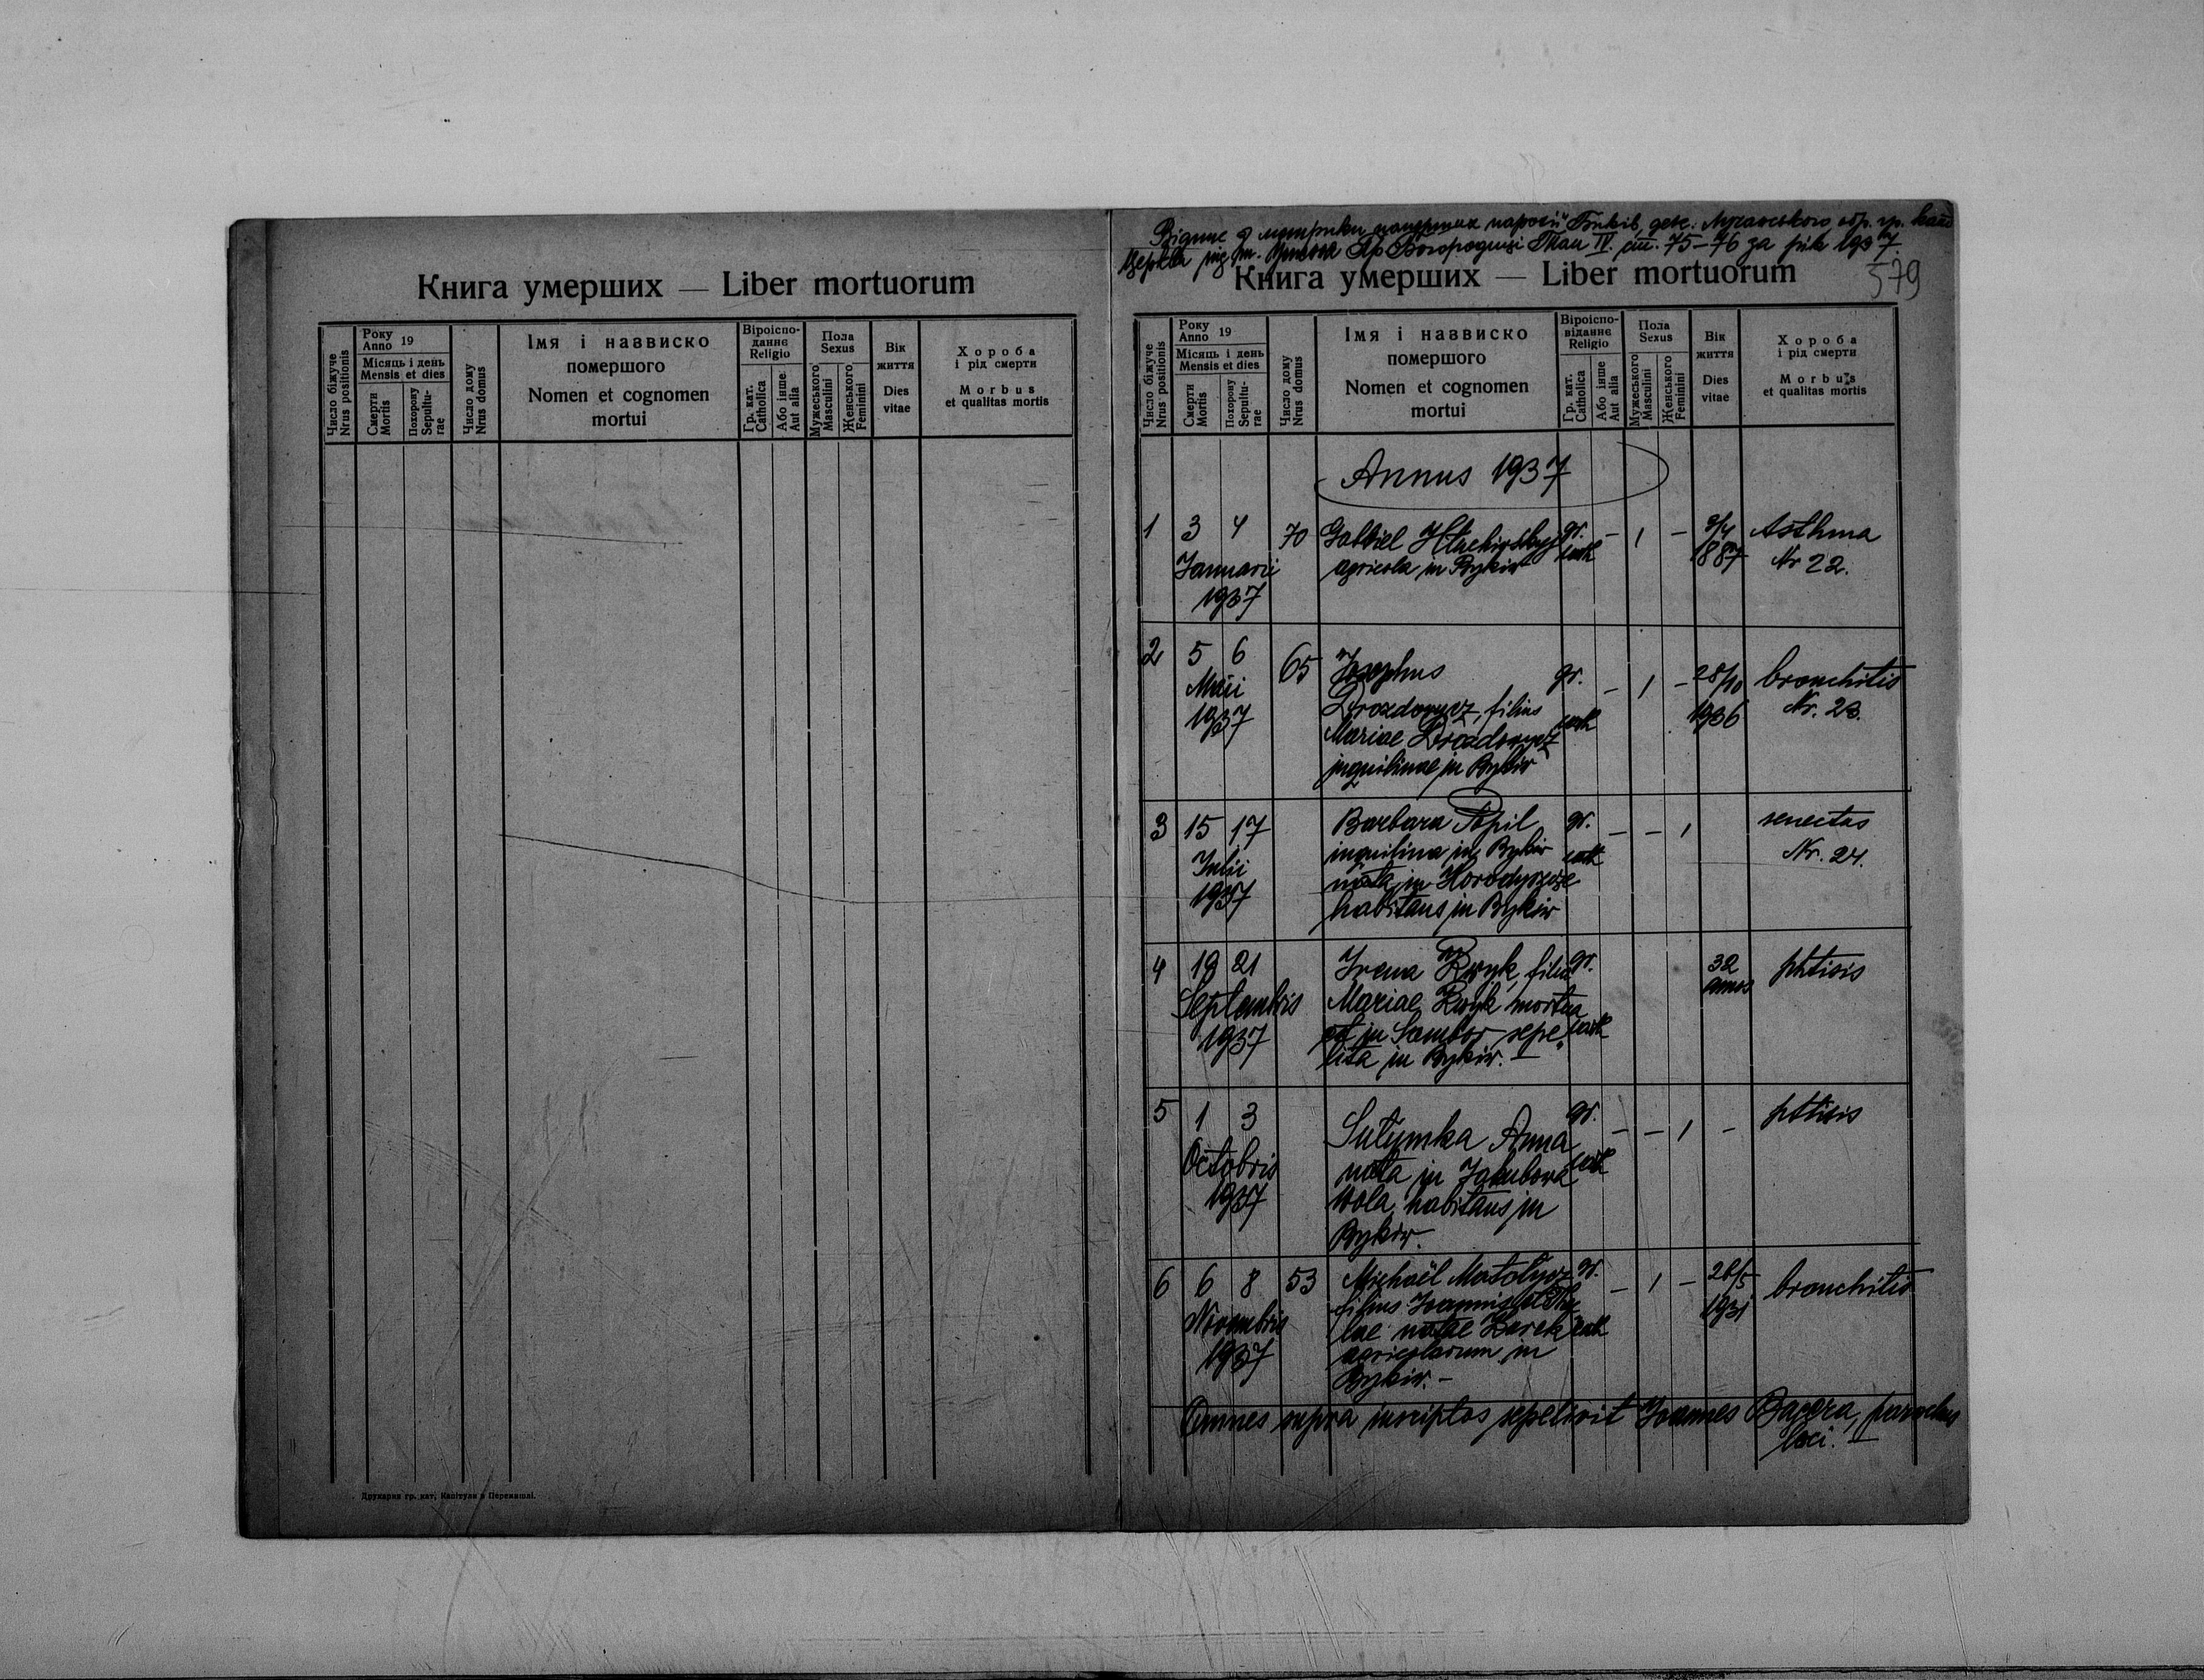 Книга умерших — Liber mortuorum
Число біжуче
Nrus positionis
Року
Anno 19
Місяць і день
Mensis et dies
Смерти
Mortis
Похорону
Sepultu-
rae
Число дому
Nrus domus
Імя іназвиско
помершого
Nomen et cognomen
mortui
Віроіспо-
данне
Religio
Гр. кат.
Catholica
Або інше
Aut alia
Пола
Sexus
Мужеського
Masculini
Женського
Feminini
Вік
життя
Dies
vitae
Хороба
і рід смерти
Morbus
et qualitas mortis
Друкарня гр. кат. Капітули в Перемишлі.
парохії Биків, дек. обр. гр. кат
Церква Пр Богородиці Том IV. ст. 75–76 за рік 1937.
579
Книга умерших — Liber mortuorum
Число біжуче
Nrus positionis
Року
Anno 19
Місяць і день
Mensis et dies
Смерти
Mortis
Похорону
Sepultu-
rae
Число дому
Nrus domus
Імя і назвиско
помершого
Nomen et cognomen
mortui
Віроіспо-
віданне
Religio
Гр. кат.
Catholica
Або інше
Aut alia
Пола
Sexus
Мужеського
Masculini
Женського
Feminini
Вік
життя
Dies
vitae
Хороба
і рід смерти
Morbus
et qualitas mortis
Annus 1937
1 3 4 70 Gabriel gr. – 1 – Asthma
Januarii agricola in Bykiw cath 1887 Nr 22.
1937
2 5 6 65 Josephus gr. – 1 – 28/10 bronchitis
Maii Drozdowycz, filius 1936 Nr. 23.
1937 Mariae Drozdowycz cath
inquilinae in Bykiw
3 15 17 Barbara Popil gr. – – 1 senectus
Julii inquilina in Bykiw cath Nr. 24.
1937 nata in Horodyszcze
habitans in Bykiw
4 19 21 Irena filia gr. 32 phtisis
Septembris Mariae mortua annos
1937 est in Sambor sepe- cath
lita in Bykiw. –
5 1 3 Sutymka Anna gr. – – 1 – phtisis
Octobris nata in Jakubova cath
1937 Wola habitans in
Bykiw.
6 6 8 53 Michaël Matolycz gr. – 1 – 26/5 bronchitis
Novembris filius Joannis et 1931
1937 natae cath
agricolarum in
Bykiw. –
Omnes supra inscriptos sepelivit Joannes parochus
loci. –